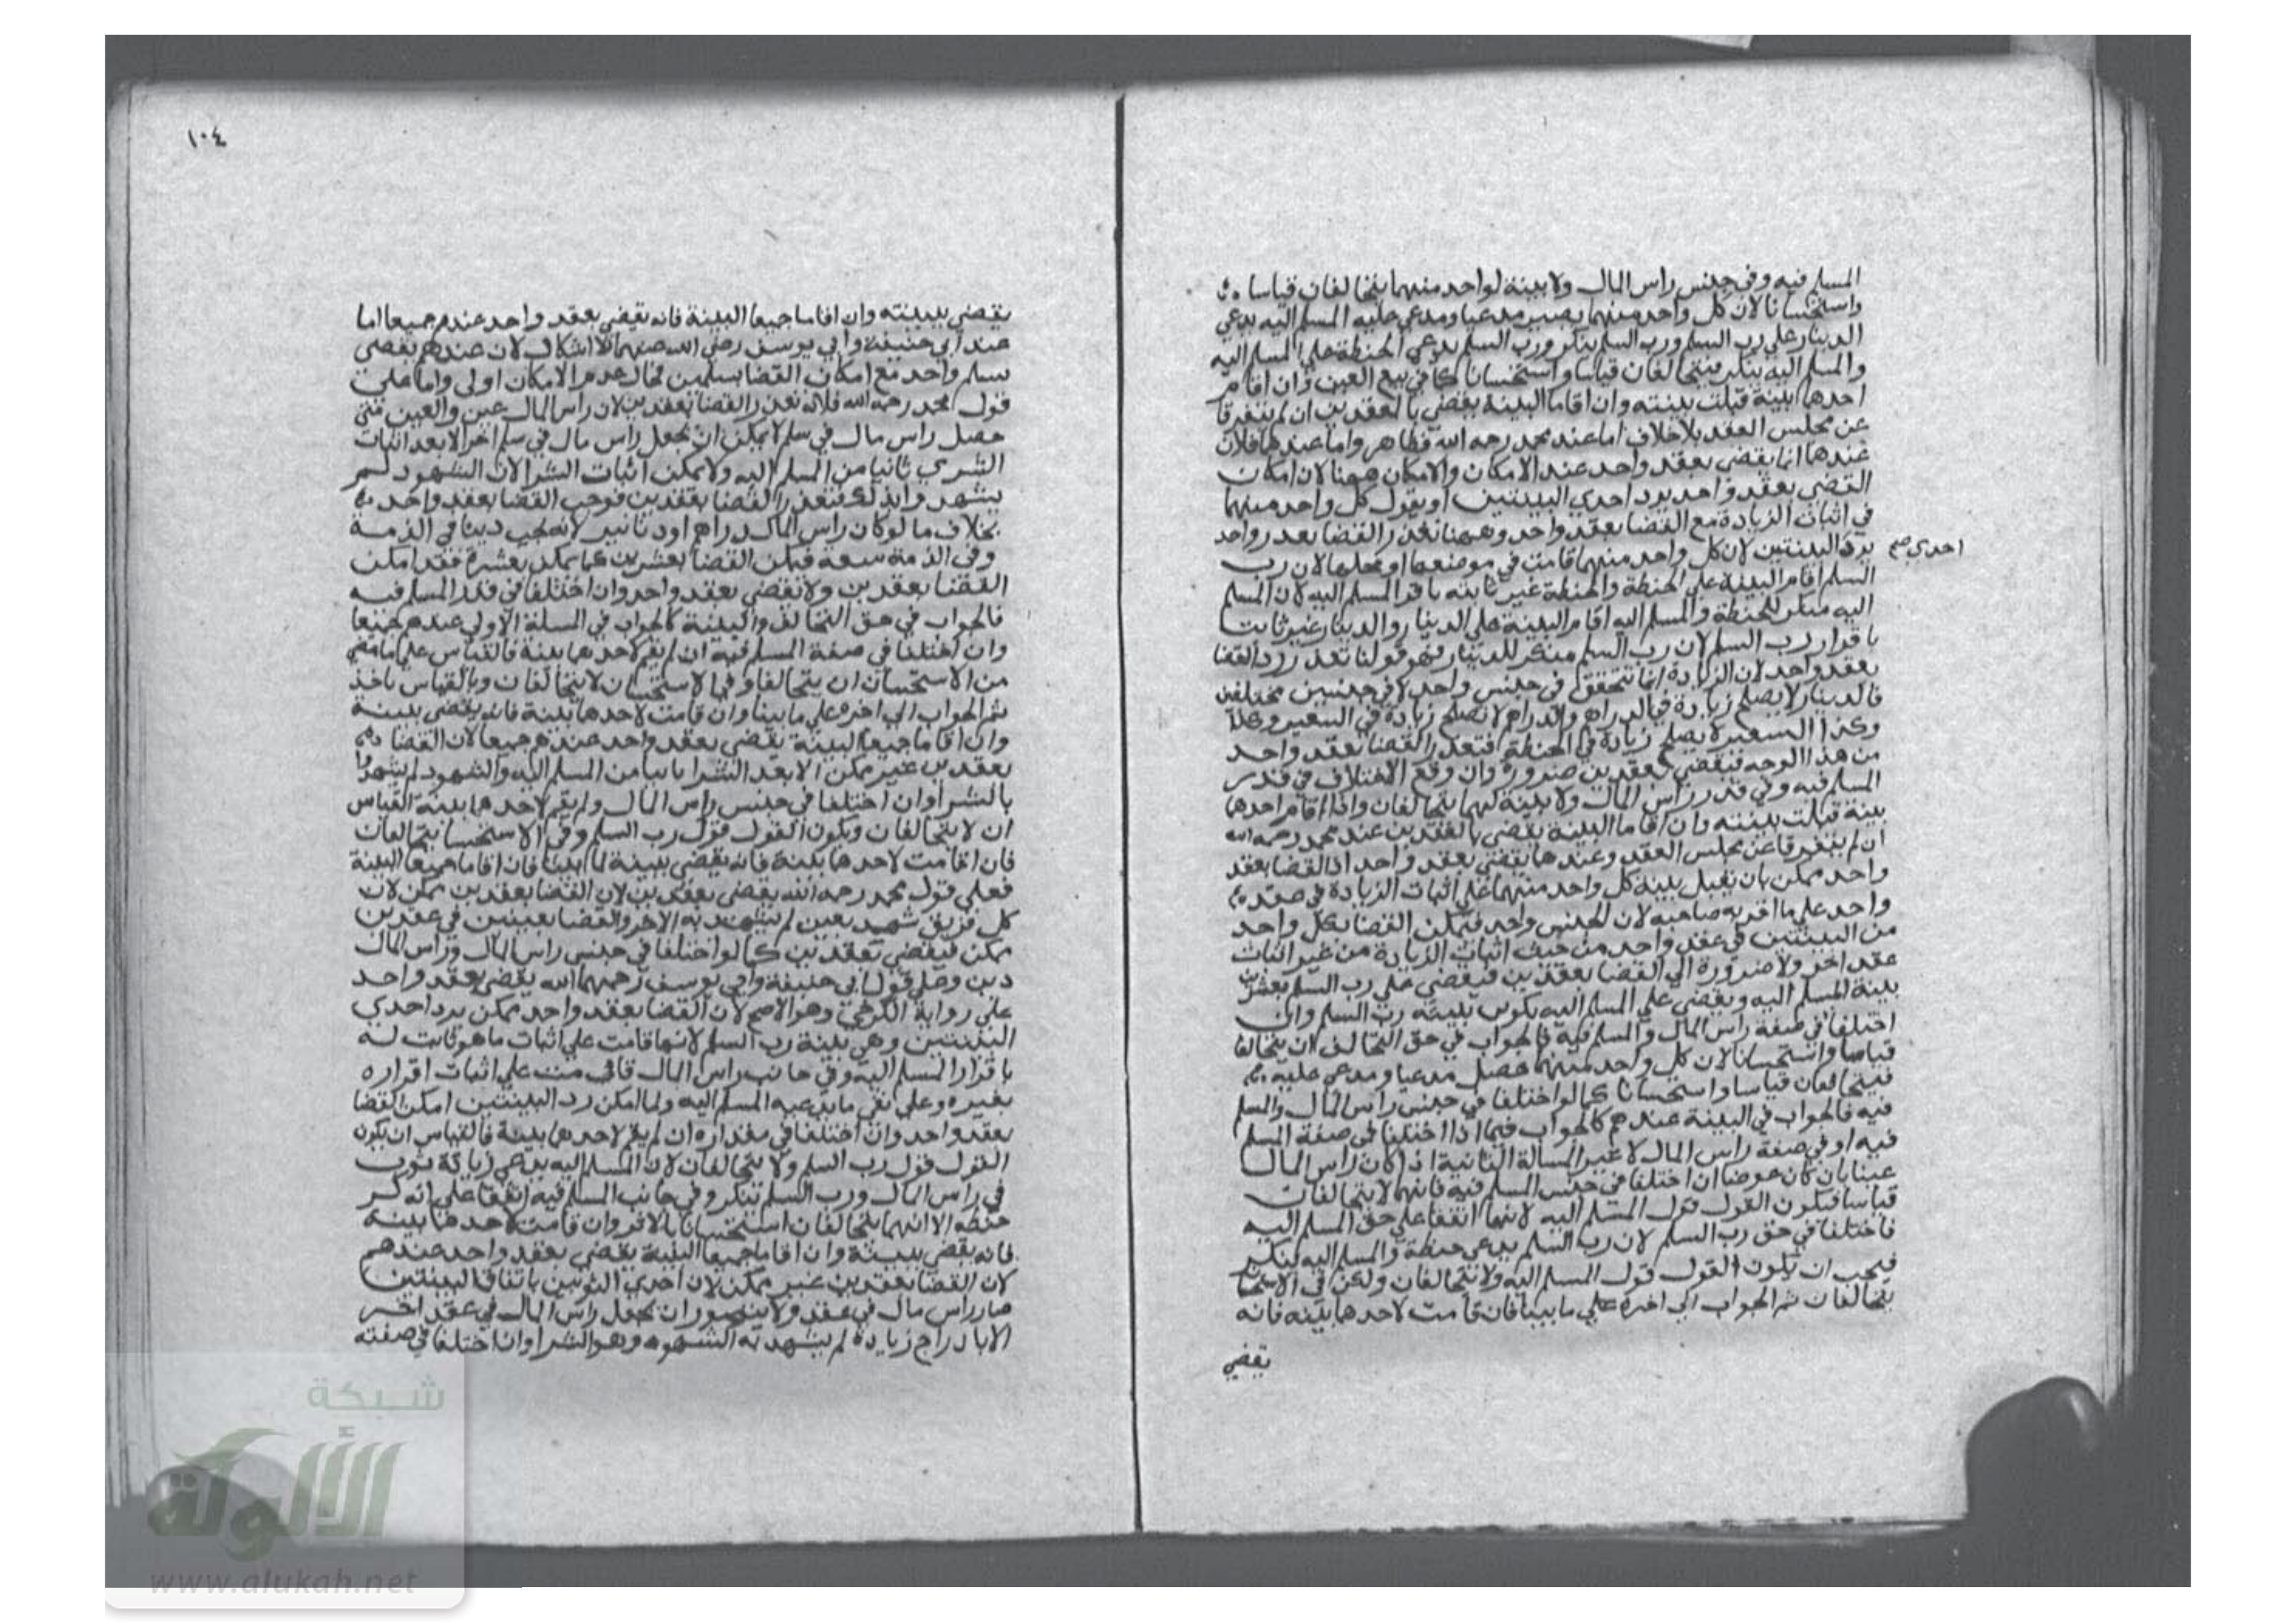 المسلم فيه وفي جنس راس المال ولا بينة لواحد منهما يتحالفان قياسا
واستحسانا لان كل واحد منهما يصير مدعيا ومدعي عليه المسلم اليه يدعي
الدينار علي رب السلم ورب السلم ينكر ورب السلم يدعي الحنطة علي المسلم اليه
والمسلم اليه ينكر فيتحالفان قياسا واستحسانا كما في بيع العين وان اقام
احدهما بينة قبلت بينته وان اقاما البينة يقضي بالعقدين ان لم يتفرقا
عن مجلس العقد بلا خلاف اما عند محمد رحمه الله فظاهر واما عندهما فلان
عندهما انما يقضي بعقد واحد عند الامكان والامكان ههنا لان امكان
القضي بعقد واحد برد احدي البينتين او بقول كل واحد منهما
في اثبات الزيادة مع القضا بعقد واحد وههنا تعذر القضا بعد واحد
برد البينتين لان كل واحد منهما قامت في موضعها او محلها لان رب
احدي صح
السلم اقام البينة علي الحنطة والحنطة غير ثابته باقرار المسلم اليه لان المسلم
اليه منكر للحنطة والمسلم اليه اقام البينة علي الدينار والدينار غير ثابت
باقرار رب السلم لان رب السلم منكر للدينار فهو قولنا تعذر رد القضا
بعقد واحد لان الزيادة انما تتحقق في جنس واحد لا في جنسين مختلفين
فالدينار لا يصلح زيادة في الدراهم والدراهم لا تصلح زيادة في الشعير وكذا
وكذا الشعير لا يصلح زيادة في الحنطة فتعذر القضا بعقد واحد
من هذا الوجه فيقضي بعقدين ضرورة وان وقع الاختلاف في قدر
المسلم فيه وفي قدر راس المال ولا بينة لهما يتحالفان واذا اقام احدهما
بينة قبلت بينته وان اقاما البينة يقضي بالعقدين عند محمد رحمه الله
ان لم يتفرقا عن مجلس العقد وعندهما يقضي بعقد واحد اذ القضا بعقد
واحد ممكن بان يقبل بينة كل واحد منهما علي اثبات الزيادة في عقد
واحد علي ما اقر به صاحبه لان الجنس واحد فيمكن القضا بكل واحد
من البينتين في عقد واحد من حيث اثبات الزيادة من غير اثبات
عقد اخر ولا ضرورة الي القضا بعقدين فيقضي علي رب السلم بعشرين
بينة المسلم اليه ويقضي علي المسلم اليه بكرين ببينة رب السلم وان
اختلفا في صفة راس المال والمسلم فيه فالجواب في حق التحالف ان يتحالفا
قياسا واستحسانا لان كل واحد منهما حصل مدعيا ومدعي عليه
فيتحالفان قياسا واستحسانا كما لو اختلفا في جنس راس المال والمسلم
فيه فالجواب في البينة عندهم كالجواب فيما اذا اختلفا في صفة المسلم
فيه او في صفة راس المال لا غير المسالة الثانية اذا كان راس المال
عينا بان كان عوضا ان اختلفا في جنس المسلم فيه فانهما لا يتحالفان
قياسا فيكون القول قول المسلم اليه لانهما اتفقا علي حق المسلم اليه
فاختلفا في حق رب السلم لان رب السلم يدعي حنطة والمسلم اليه ينكر
فيجب ان تكون القول قول المسلم اليه ولا يتحالفان ولكن في الاستحسا
يتحالفان ثم الجواب الي اخره علي ما بينا فان قامت لاحدهما بينه فانه
يقضي
١٠٤
يقضي ببينته وان اقاما جميعا البينة فانه يقضي بعقد واحد عندهم جميعا اما
عند ابي حنيفة وابي يوسف رضي الله عنهما فلا اشكال لان عندهم يقضي
بسلم واحد مع امكان القضا بسلمين فحال عدم الامكان اولي واما علي
قول محمد رحمه الله فلانه تعذر القضا بعقدين لان راس المال عين والعين متي
حصل راس مال في سلم لا يمكن ان يجعل راس مال في سلم اخر الا بعد اثبات
الشري ثانيا من المسلم اليه ولا يمكن اثبات الشرا لان الشهود لم
يشهدوا بذلك فتعذر القضا بعقدين فوجب القضا بعقد واحد
بخلاف ما لو كان راس المال دراهم او دنانير لانه يجب دينا في الذمة
وفي الذمة سعة فيمكن القضا بعشرين كما يمكن بعشرة فقد امكن
القضا بعقدين ولا نقضي بعقد واحد وان اختلفا في قدر المسلم فيه
فالجواب في حق التحالف والبينة كالجواب في المسلة الاولي عندهم جميعا
وان اختلفا في صفة المسلم فيه ان لم يقم لاحدهما بينة فالقياس علي ما مضي
من الاستحسان ان يتحالفا وفي الاستحسان لا يتحالفان وبالقياس ناخذ
ثم الجواب الي اخره علي ما بينا وان قامت لاحدهما بينة فانه يقضي ببينة
وان اقاما جميعا البينة يقضي بعقد واحد عندهم جميعا لان القضا
بعقدين غير ممكن الا بعد الشرا ثانيا من المسلم اليه والشهود لم يشهدوا
بالشرا وان اختلفا في جنس راس المال ولم يقم لاحدهما بينة القياس
ان لا يتحالفان ويكون القول قول رب السلم وفي الاستحسان يتحالفان
فان اقامت لاحدهما بينة فانه يقضي ببينة لما بينا فان اقاما جميعا البينة
فعلي قول محمد رحمه الله يقضي بعقدين لان القضا بعقدين ممكن لان
كل فريق شهد بعين لم يشهد به الاخر والقضا بعينين في عقدين
ممكن فيقضي بعقدين كما لو اختلفا في جنس راس المال وراس المال
دين وعلي قول ابي حنيفة وابي يوسف رحمهما الله يقضي بعقد واحد
علي رواية الكرخي وهو الاصح لان القضا بعقد واحد ممكن برد احدي
البينتين وهي بينة رب السلم لانها قامت علي اثبات ما هو ثابت له
باقرار المسلم اليه وفي جانب راس المال قامت علي اثبات اقراره
بغيره وعلي نفي ما يدعيه المسلم اليه ولما امكن رد البينتين امكن القضا
بعقد واحد وان اختلفا في مقداره ان لم يقم لاحدهما بينة فالقياس ان يكون
القول قول رب السلم ولا يتحالفان لان المسلم اليه يدعي زيادة ثوب
في راس المال ورب السلم ينكر وفي جانب المسلم فيه اتفقا علي انه كر
حنطه الا انهما يتحالفان استحسانا بالاثر وان قامت لاحدهما بينه
فانه يقضي ببينة وان اقاما جميعا البينة يقضي بعقد واحد عندهم
لان القضا بعقدين غير ممكن لان احدي الثوبين باتفاق البينتين
صار راس مال في عقد ولا يتصور ان يجعل راس المال في عقد اخر
الا بادراج زيادة لم يشهد به الشهود وهو الشرا وان اختلفا في صفته
شبكة
الألوكة
www.alukah.net